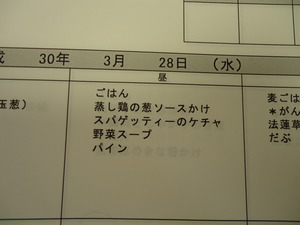 成 30年 3月 28日 (水)
昼
玉葱)
ごはん
蒸し鶏の葱ソースかけ
スパゲッティーのケチャ
野菜スープ
パイン
麦ごは
*がん
法蓮草
だぶ